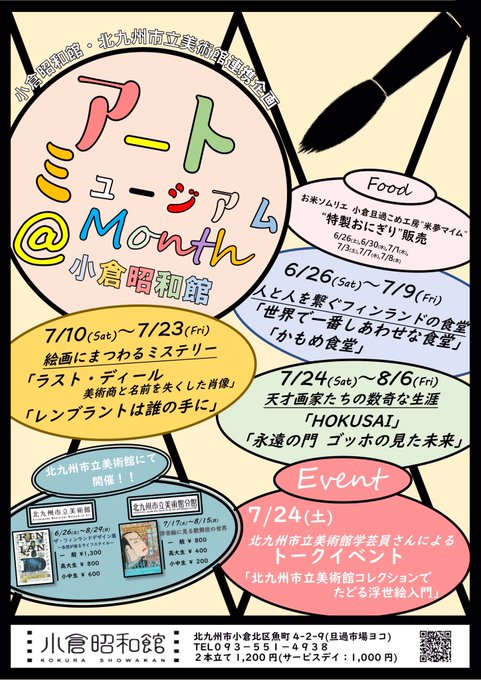 小倉昭和館・北九州市立美術館連携企画
アート
ミュージアム
@Month
小倉昭和館
Food
お米ソムリエ 小倉旦過こめ工房"米夢マイム"
"特製おにぎり"販売
6/26(土),6/30(水),7/1(木),
7/3(土),7/7(水),7/8(木)
6/26(Sat)～7/9(Fri)
人と人を繋ぐフィンランドの食堂
「世界で一番しあわせな食堂」
「かもめ食堂」
7/10(Sat)～7/23(Fri)
絵画にまつわるミステリー
「ラスト・ディール
美術商と名前を失くした肖像」
「レンブラントは誰の手に」
7/24(Sat)～8/6(Fri)
天才画家たちの数奇な生涯
「HOKUSAI」
「永遠の門 ゴッホの見た未来」
北九州市立美術館にて
開催！！
北九州市立美術館
6/26(土)～8/29(日)
ザ・フィンランドデザイン展
―自然が宿るライフスタイル―
一般 ¥1,300
高大生 ¥ 800
小中生 ¥ 600
北九州市立美術館分館
7/17(土)～8/15(日)
浮世絵に見る歌舞伎の世界
一般 ¥ 800
高大生 ¥ 400
小中生 ¥ 200
Event
7/24(土)
北九州市立美術館学芸員さんによる
トークイベント
「北九州市立美術館コレクションで
たどる浮世絵入門」
小倉昭和館
KOKURA SHOWAKAN
北九州市小倉北区魚町4-2-9(旦過市場ヨコ)
TEL093-551-4938
2本立て1,200円(サービスデイ:1,000円)